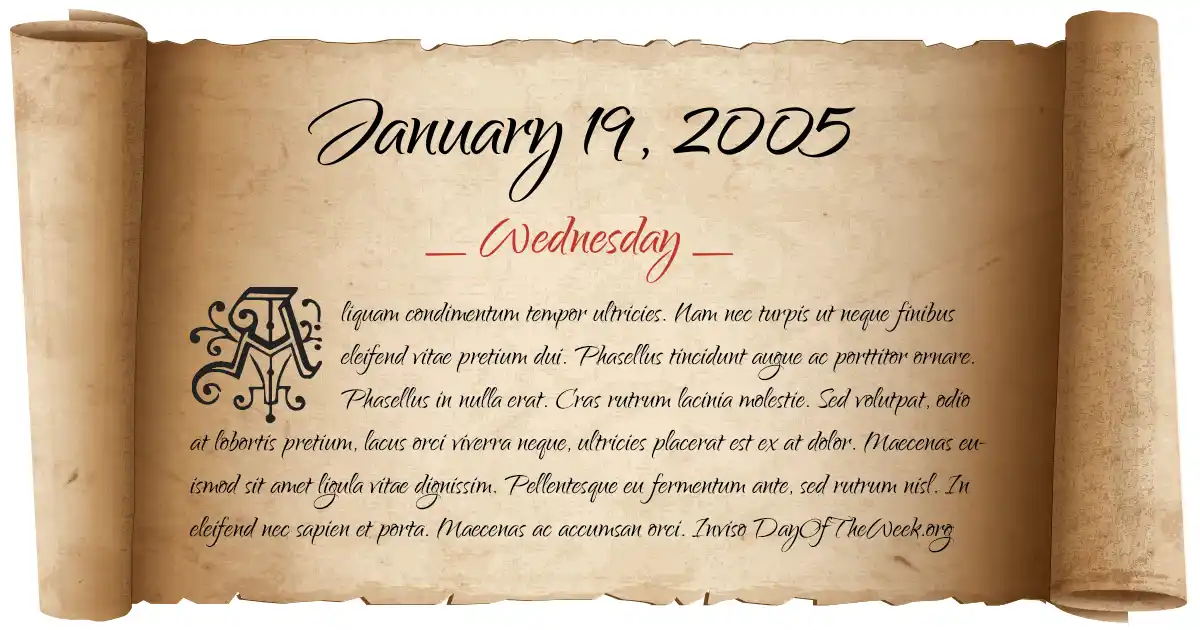 January 19, 2005
__ Wednesday __
Aliquam condimentum tempor ultricies. Nam nec turpis ut neque finibus
eleifend vitae pretium dui. Phasellus tincidunt augue ac porttitor ornare.
Phasellus in nulla erat. Cras rutrum lacinia molestie. Sed volutpat, odio
at lobortis pretium, lacus orci viverra neque, ultricies placerat est ex at dolor. Maecenas eu-
ismod sit amet ligula vitae dignissim. Pellentesque eu fermentum ante, sed rutrum nisl. In
eleifend nec sapien et porta. Maecenas ac accumsan orci. Inviso DayOfTheWeek.org